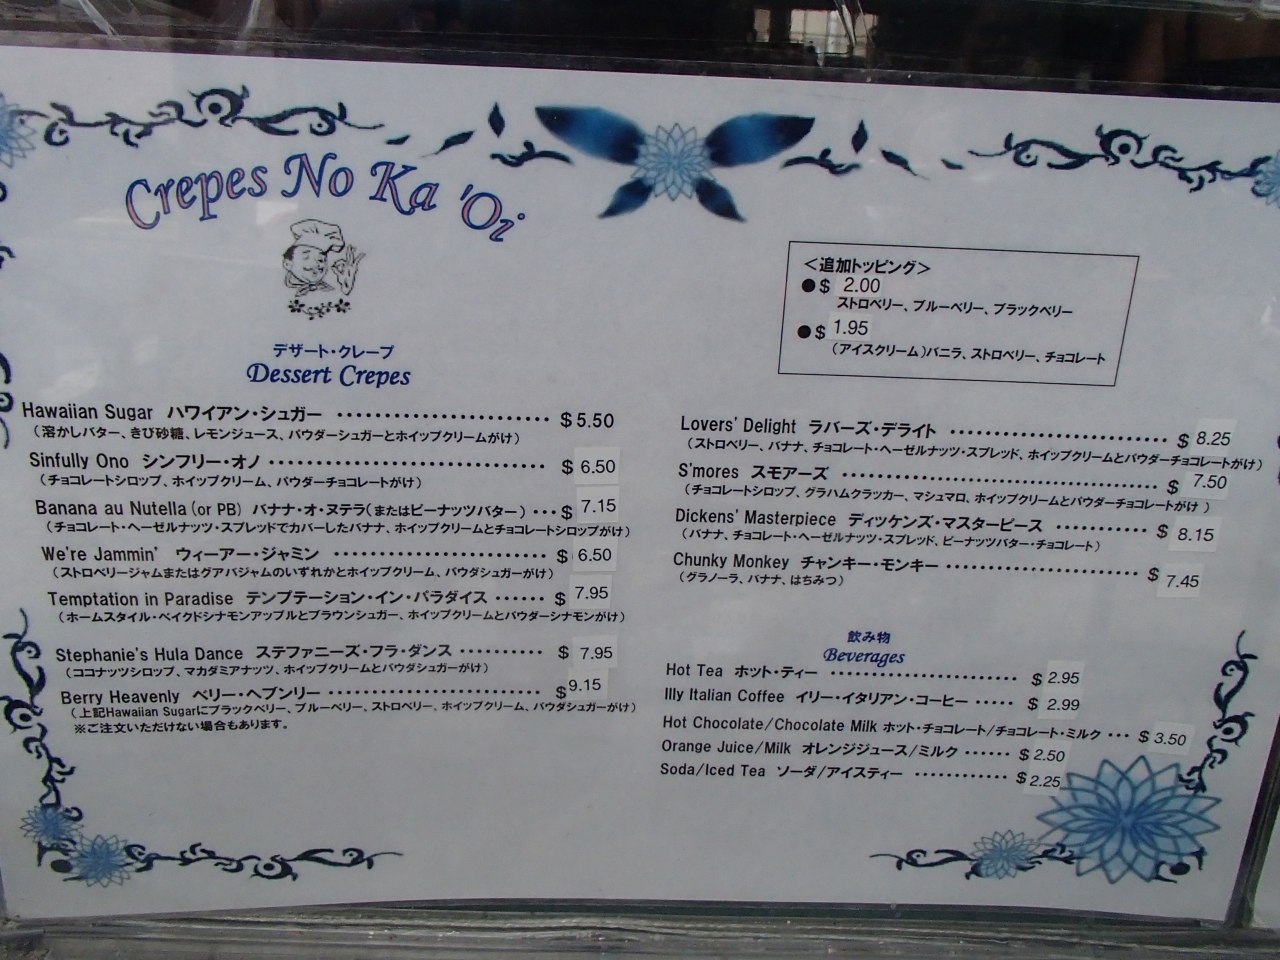 Crepes No Ka 'Oi
デザート・クレープ
Dessert Crepes
Hawaiian Sugar ハワイアン・シュガー ………………… $5.50
（溶かしバター、きび砂糖、レモンジュース、パウダーシュガーとホイップクリームがけ）
Sinfully Ono シンフリー・オノ ………………… $ 6.50
（チョコレートシロップ、ホイップクリーム、パウダーチョコレートがけ）
Banana au Nutella (or PB) バナナ・オ・ヌテラ（またはピーナッツバター） … $ 7.15
（チョコレート・ヘーゼルナッツ・スプレッドでカバーしたバナナ、ホイップクリームとチョコレートシロップがけ）
We're Jammin' ウィーアー・ジャミン ………………… $ 6.50
（ストロベリージャムまたはグアバジャムのいずれかとホイップクリーム、パウダシュガーがけ）
Temptation in Paradise テンプテーション・イン・パラダイス …… $ 7.95
（ホームスタイル・ベイクドシナモンアップルとブラウンシュガー、ホイップクリームとパウダーシナモンがけ）
Stephanie's Hula Dance ステファニーズ・フラ・ダンス ………… $ 7.95
（ココナッツシロップ、マカダミアナッツ、ホイップクリームとパウダシュガーがけ）
Berry Heavenly ベリー・ヘブンリー ………………… $9.15
（上記Hawaiian Sugarにブラックベリー、ブルーベリー、ストロベリー、ホイップクリーム、パウダシュガーがけ）
※ご注文いただけない場合もあります。
＜追加トッピング＞
●$ 2.00
ストロベリー、ブルーベリー、ブラックベリー
●$ 1.95
（アイスクリーム）バニラ、ストロベリー、チョコレート
Lovers' Delight ラバーズ・デライト ………………… $ 8.25
（ストロベリー、バナナ、チョコレート・ヘーゼルナッツ・スプレッド、ホイップクリームとパウダーチョコレートがけ）
S'mores スモアーズ ………………… $ 7.50
（チョコレートシロップ、グラハムクラッカー、マシュマロ、ホイップクリームとパウダーチョコレートがけ ）
Dickens' Masterpiece ディッケンズ・マスターピース ………… $ 8.15
（バナナ、チョコレート・ヘーゼルナッツ・スプレッド、ピーナッツバター・チョコレート）
Chunky Monkey チャンキー・モンキー ………………… $ 7.45
（グラノーラ、バナナ、はちみつ）
飲み物
Beverages
Hot Tea ホット・ティー ………………… $ 2.95
Illy Italian Coffee イリー・イタリアン・コーヒー …… $ 2.99
Hot Chocolate/Chocolate Milk ホット・チョコレート/チョコレート・ミルク … $ 3.50
Orange Juice/Milk オレンジジュース/ミルク …… $ 2.50
Soda/Iced Tea ソーダ/アイスティー ………… $ 2.25